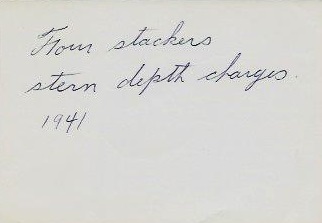 Four stackers
stern depth charges.
1941